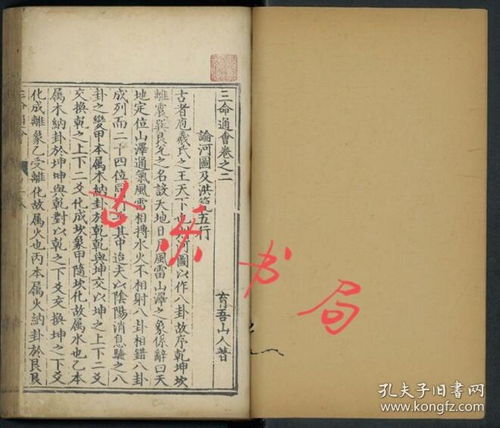 三命通會卷之二
論河圖及洪範五行
育吾山人著
古者庖羲氏之王天下也 河圖以作八卦故序乾坤坎
離震巽艮兌之名設天地日月風雷山澤之象係辭曰天
地定位山澤通氣風雷相搏水火不相射八卦相錯八卦
成列而二十四位 其中迨夫以陰陽消息驗之八
卦之變甲本屬木納卦於乾乾與坤交以坤之上下二爻
交換乾之上下二爻化成坎象甲隨坎化故屬水也乙本
屬木納卦於坤坤與乾對以乾之上下爻交換坤之上下爻
化成離象乙受離化故屬火也丙本屬火納卦於艮艮
书局
孔夫子旧书网
www.kongfz.com